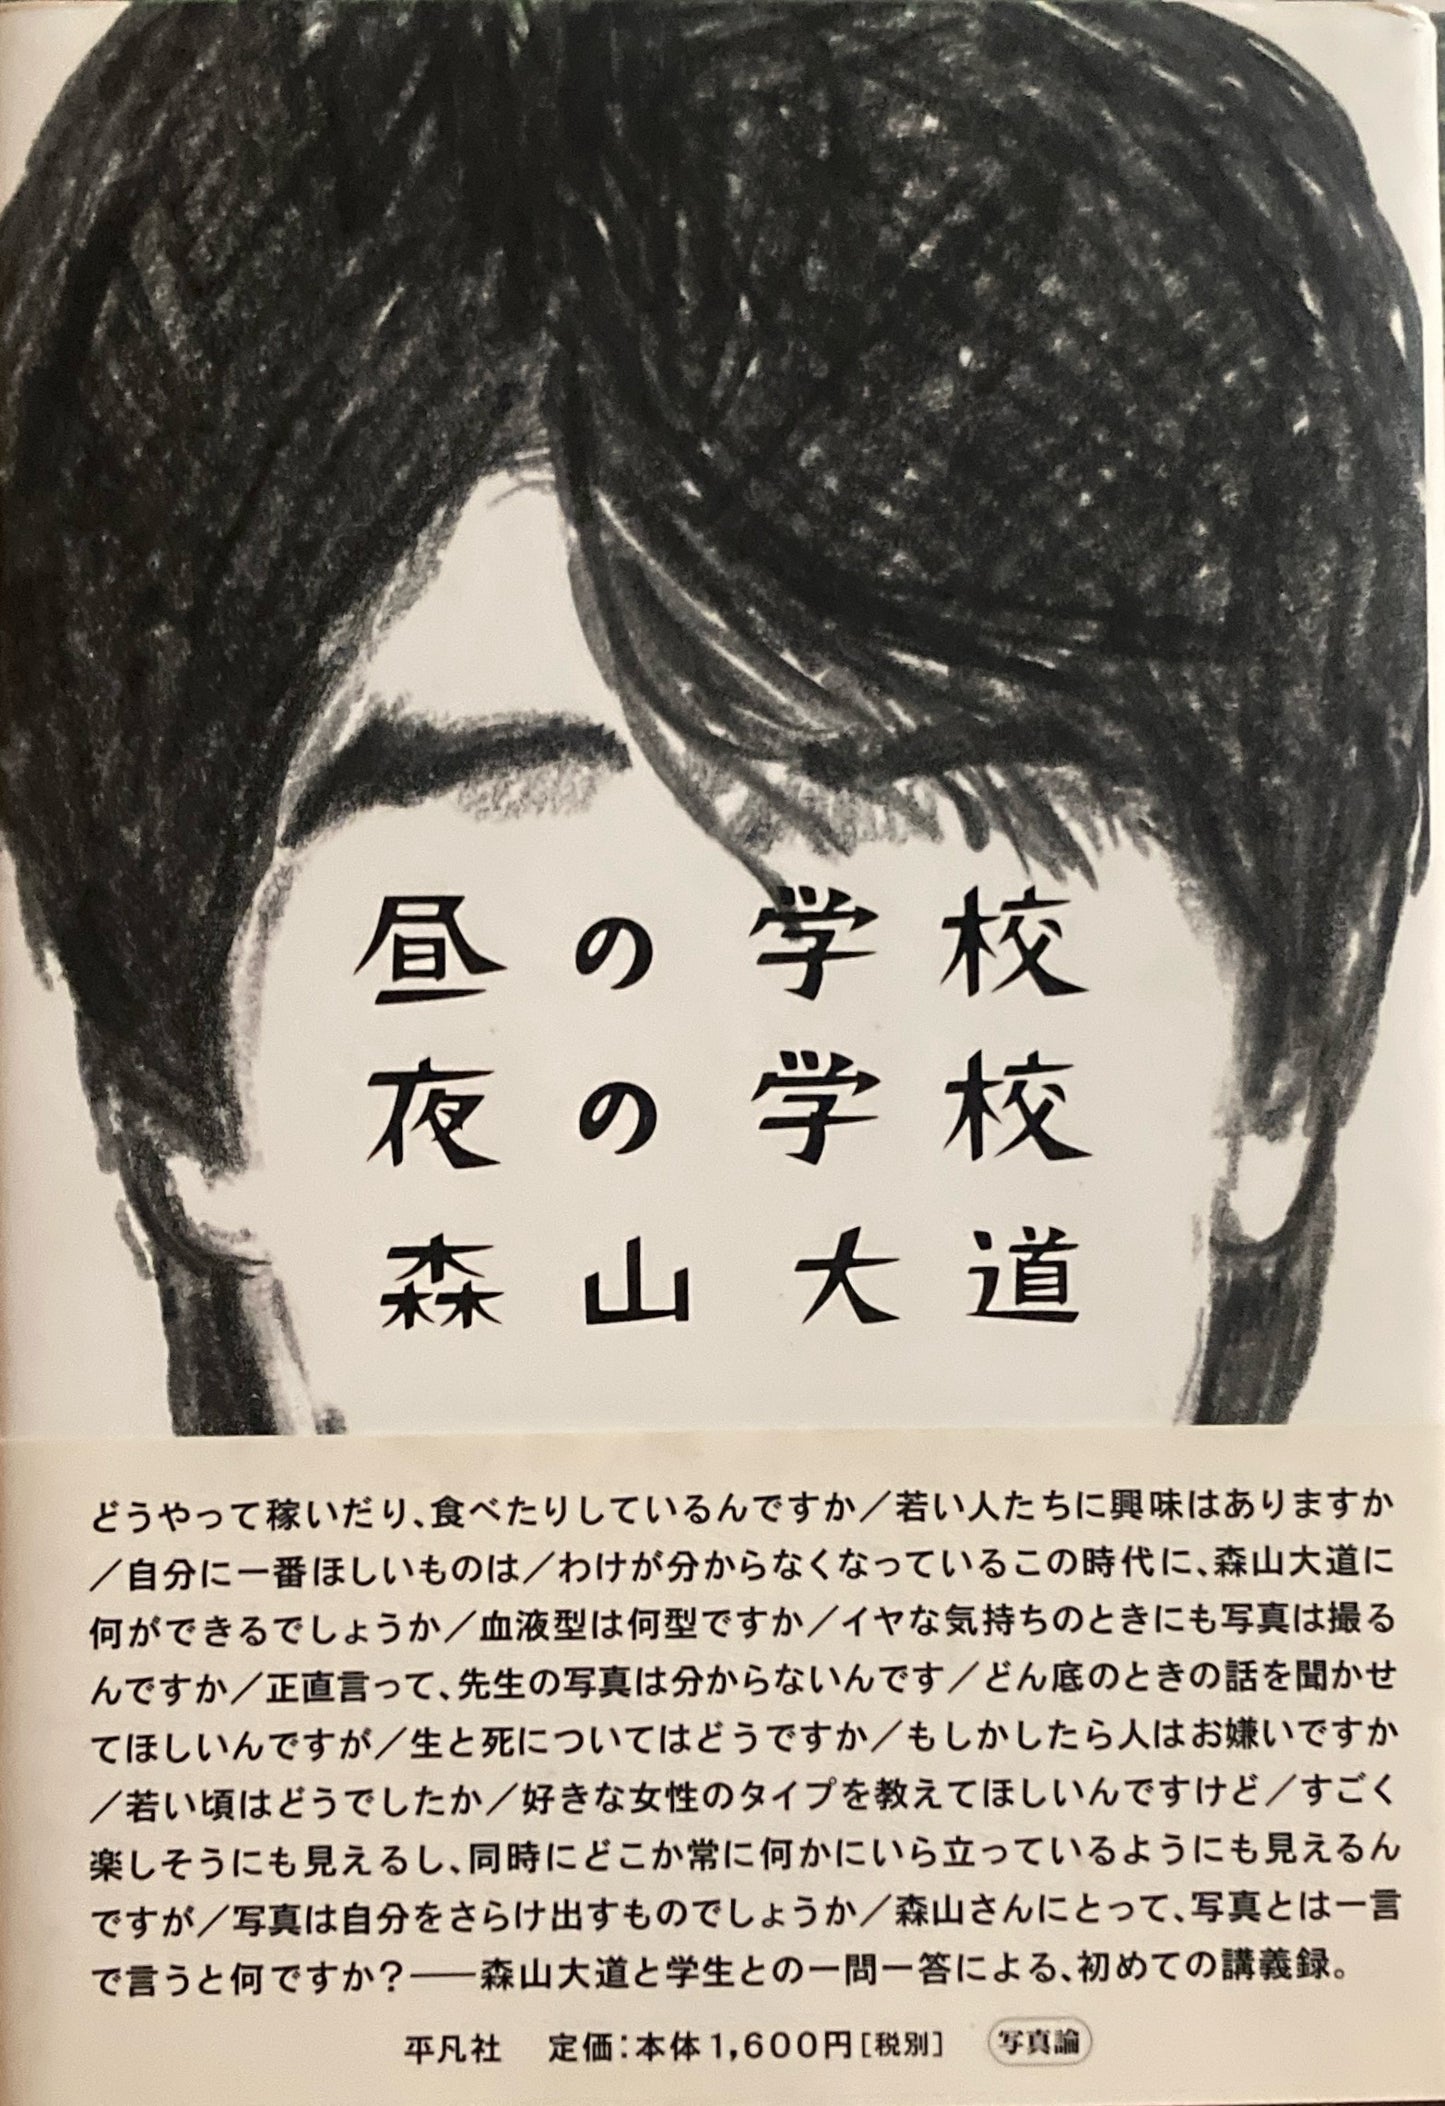 昼の学校
夜の学校
森山大道
どうやって稼いだり、食べたりしているんですか／若い人たちに興味はありますか
／自分に一番ほしいものは／わけが分からなくなっているこの時代に、森山大道に
何ができるでしょうか／血液型は何型ですか／イヤな気持ちのときにも写真は撮る
んですか／正直言って、先生の写真は分からないんです／どん底のときの話を聞かせ
てほしいんですが／生と死についてはどうですか／もしかしたら人はお嫌いですか
／若い頃はどうでしたか／好きな女性のタイプを教えてほしいんですけど／すごく
楽しそうにも見えるし、同時にどこか常に何かにいら立っているようにも見えるん
ですが／写真は自分をさらけ出すものでしょうか／森山さんにとって、写真とは一言
で言うと何ですか？――森山大道と学生との一問一答による、初めての講義録。
平凡社　定価：本体1,600円［税別］　写真論